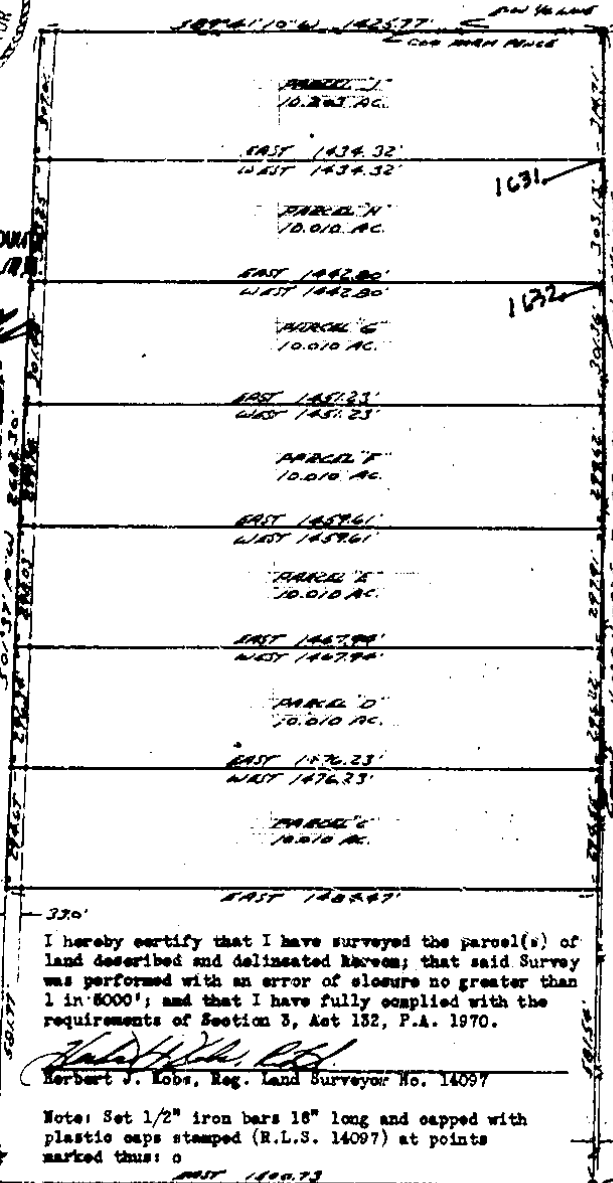 S89°41'10"W 1425.77'
PARCEL "J"
10.203 AC.
EAST 1434.32'
WEST 1434.32'
1631
303.13'
PARCEL "H"
10.010 AC.
EAST 1442.80'
WEST 1442.80'
1632
301.36'
PARCEL "G"
10.010 AC.
EAST 1451.23'
WEST 1451.23'
299.62'
PARCEL "F"
10.010 AC.
EAST 1459.61'
WEST 1459.61'
297.91'
PARCEL "E"
10.010 AC.
EAST 1467.94'
WEST 1467.94'
PARCEL "D"
10.010 AC.
EAST 1476.23'
WEST 1476.23'
PARCEL "C"
10.010 AC.
EAST 1484.47'
33.0'
S01°37'10"W
I hereby certify that I have surveyed the parcel(s) of
land described and delineated hereon; that said Survey
was performed with an error of closure no greater than
1 in 5000'; and that I have fully complied with the
requirements of Section 3, Act 132, P.A. 1970.
Herbert J. Kobs, Reg. Land Surveyor No. 14097
Note: Set 1/2" iron bars 18" long and capped with
plastic caps stamped (R.L.S. 14097) at points
marked thus: o
581.77'
581.54'